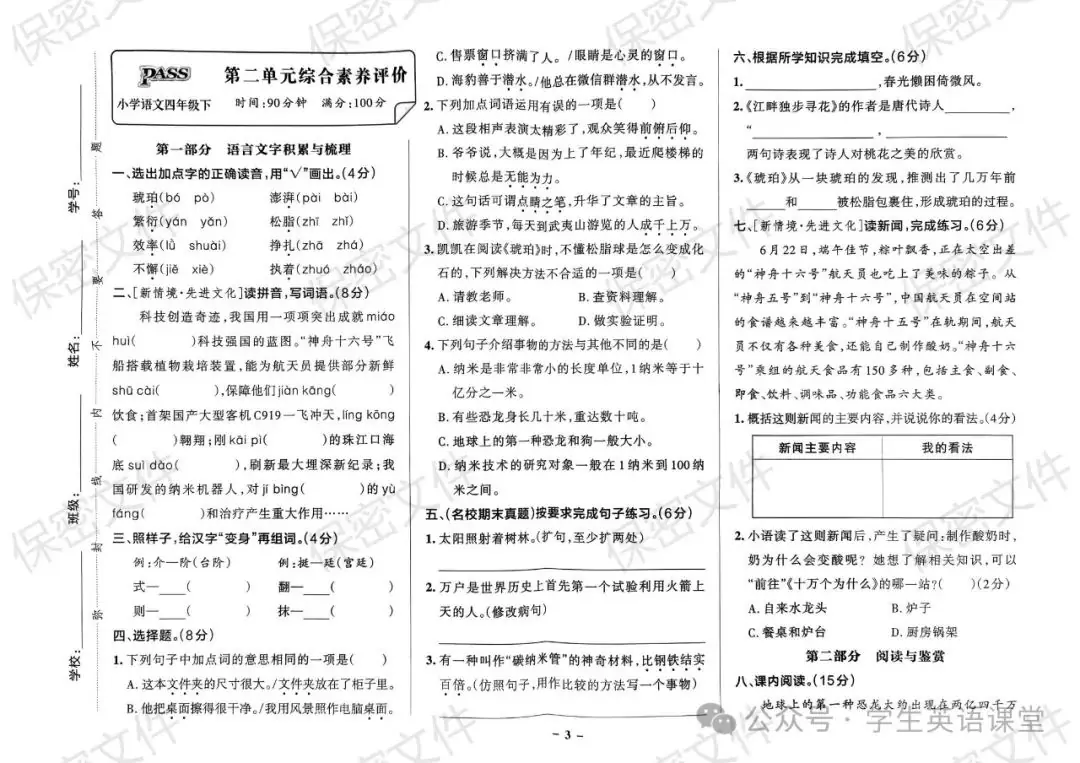 PASS
第二单元综合素养评价
小学语文四年级下 时间:90分钟 满分:100分
学校:
班级:
姓名:
学号:
弥 封 线 内 不 要 答 题
第一部分 语言文字积累与梳理
一、选出加点字的正确读音,用“√”画出。(4分)
琥珀(bó pò) 澎湃(pài bài)
繁衍(yán yǎn) 松脂(zhī zhǐ)
效率(lǜ shuài) 挣扎(zhā zhá)
不懈(jiě xiè) 执着(zhuó zháo)
二、[新情境·先进文化]读拼音,写词语。(8分)
科技创造奇迹,我国用一项项突出成就 miáo
huì( )科技强国的蓝图。“神舟十六号”飞
船搭载植物栽培装置,能为航天员提供部分新鲜
shū cài( ),保障他们 jiàn kāng( )
饮食;首架国产大型客机C919一飞冲天,líng kōng
( )翱翔;刚 kāi pì( )的珠江口海
底 suì dào( ),刷新最大埋深新纪录;我
国研发的纳米机器人,对 jí bìng( )的 yù
fáng( )和治疗产生重大作用……
三、照样子,给汉字“变身”再组词。(4分)
例:介—阶(台阶) 例:挺—廷(宫廷)
式—____( ) 翻—____( )
则—____( ) 抹—____( )
四、选择题。(8分)
1. 下列句子中加点词的意思相同的一项是( )
A. 这本文件夹的尺寸很大。/文件夹放在了柜子里。
B. 他把桌面擦得很干净。/我用风景照作电脑桌面。
C. 售票窗口挤满了人。/眼睛是心灵的窗口。
D. 海豹善于潜水。/他总在微信群潜水,从不发言。
2. 下列加点词语运用有误的一项是( )
A. 这段相声表演太精彩了,观众笑得前俯后仰。
B. 爷爷说,大概是因为上了年纪,最近爬楼梯的
时候总是无能为力。
C. 这句话可谓点睛之笔,升华了文章的主旨。
D. 旅游季节,每天到武夷山游览的人成千上万。
3. 凯凯在阅读《琥珀》时,不懂松脂球是怎么变成化
石的,下列解决方法不合适的一项是( )
A. 请教老师。 B. 查资料理解。
C. 细读文章理解。 D. 做实验证明。
4. 下列句子介绍事物的方法与其他不同的是( )
A. 纳米是非常非常小的长度单位,1纳米等于十
亿分之一米。
B. 有些恐龙身长几十米,重达数十吨。
C. 地球上的第一种恐龙和狗一般大小。
D. 纳米技术的研究对象一般在1纳米到100纳
米之间。
五、(名校期末真题)按要求完成句子练习。(6分)
1. 太阳照射着树林。(扩句,至少扩两处)
2. 万户是世界历史上首先第一个试验利用火箭上
天的人。(修改病句)
3. 有一种叫作“碳纳米管”的神奇材料,比钢铁结实
百倍。(仿照句子,用作比较的方法写一个事物)
六、根据所学知识完成填空。(6分)
1. ____________,春光懒困倚微风。
2.《江畔独步寻花》的作者是唐代诗人________,
“______________,______________”
两句诗表现了诗人对桃花之美的欣赏。
3.《琥珀》从一块琥珀的发现,推测出了几万年前
____和____被松脂包裹住,形成琥珀的过程。
七、[新情境·先进文化]读新闻,完成练习。(6分)
6月22日,端午佳节,粽叶飘香,正在太空出差
的“神舟十六号”航天员也吃上了美味的粽子。从
“神舟五号”到“神舟十六号”,中国航天员在空间站
的食谱越来越丰富。“神舟十五号”在轨期间,航天
员不仅有各种美食,还能自己制作酸奶。“神舟十六
号”乘组的航天食品有150多种,包括主食、副食、
即食、饮料、调味品、功能食品六大类。
1. 概括这则新闻的主要内容,并说说你的看法。(4分)
新闻主要内容 我的看法
2. 小语读了这则新闻后,产生了疑问:制作酸奶时,
奶为什么会变酸呢?她想了解相关知识,可以
“前往”《十万个为什么》的哪一站?( )(2分)
A. 自来水龙头 B. 炉子
C. 餐桌和炉台 D. 厨房锅架
第二部分 阅读与鉴赏
八、课内阅读。(15分)
地球上的第一种恐龙大约出现在两亿四千万
- 3 -
公众号·学生英语课堂
保密文件